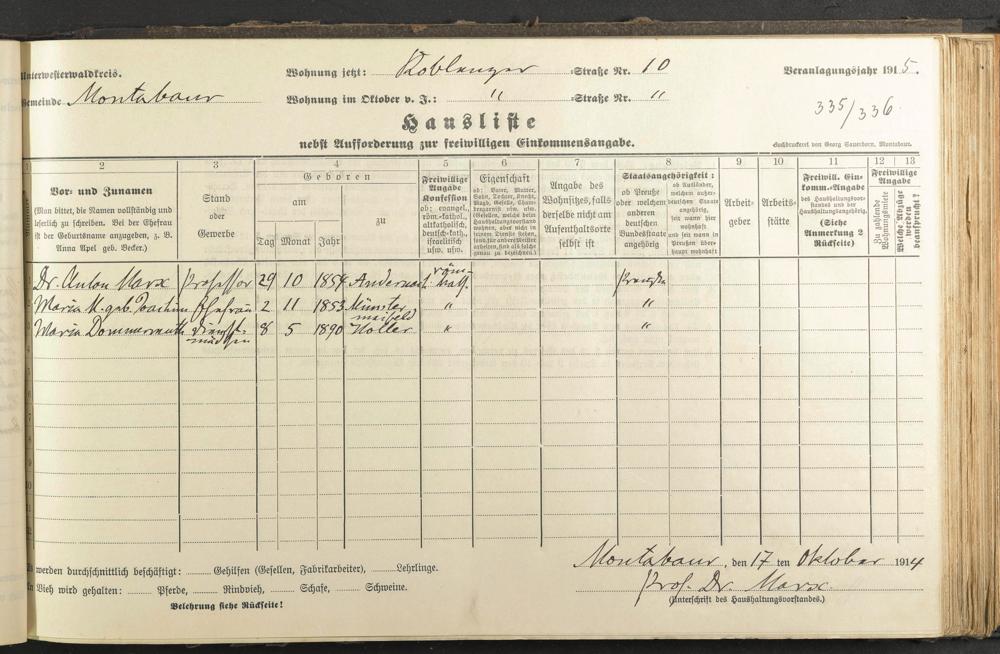 Unterwesterwaldkreis.
Wohnung jetzt: Koblenzer -Straße Nr. 10
Veranlagungsjahr 1915.
Gemeinde Montabaur
Wohnung im Oktober v. J.: " -Straße Nr. "
335/336
Hausliste
nebst Aufforderung zur freiwilligen Einkommensangabe.
Buchdruckerei von Georg Sauerborn, Montabaur.
2 3 4 5 6 7 8 9 10 11 12 13
Vor- und Zunamen
(Man bittet, die Namen vollständig und
leserlich zu schreiben. Bei der Ehefrau
ist der Geburtsname anzugeben, z. B.
Anna Apel geb. Becker.)
Stand
oder
Gewerbe
Geboren
am
zu
Tag Monat Jahr
Freiwillige
Angabe
Konfession
ob: evangel.,
röm.-kathol.,
altkatholisch,
deutsch-kath.,
israelitisch
usw. usw.
Eigenschaft
ob: Vater, Mutter,
Sohn, Tochter, Knecht,
Magd, Geselle,
Angabe des
Wohnsitzes, falls
derselbe nicht am
Aufenthaltsorte
selbst ist
Staatsangehörigkeit:
ob Preuße
oder welchem
anderen
deutschen
Bundesstaate
angehörig
ob Ausländer,
welchem außer-
deutschen Staate
angehörig,
seit wann hier
wohnhaft
und seit wann in
Preußen über-
haupt wohnhaft
Arbeit-
geber
Arbeits-
stätte
Freiwill. Ein-
komm.-Angabe
des Haushaltungsvor-
standes und der
Haushaltungsangehörig.
(Siehe
Anmerkung 2
Rückseite)
Freiwillige
Angabe
Zu zahlende
Wohnungsmiete
Welche Abzüge
werden
beansprucht?
Dr. Anton Marx Professor 29 10 1854 Andernach röm. kath. Preuße
Maria M. geb. Joachim Ehefrau 2 11 1853 Münstermaifeld " "
Maria Dommermuth Dienstmädchen 8 5 1890 Holler " "
Es werden durchschnittlich beschäftigt: Gehilfen (Gesellen, Fabrikarbeiter), Lehrlinge.
An Vieh wird gehalten: Pferde, Rindvieh, Schafe, Schweine.
Belehrung siehe Rückseite!
Montabaur, den 17 ten Oktober 1914
Prof. Dr. Marx.
(Unterschrift des Haushaltungsvorstandes.)